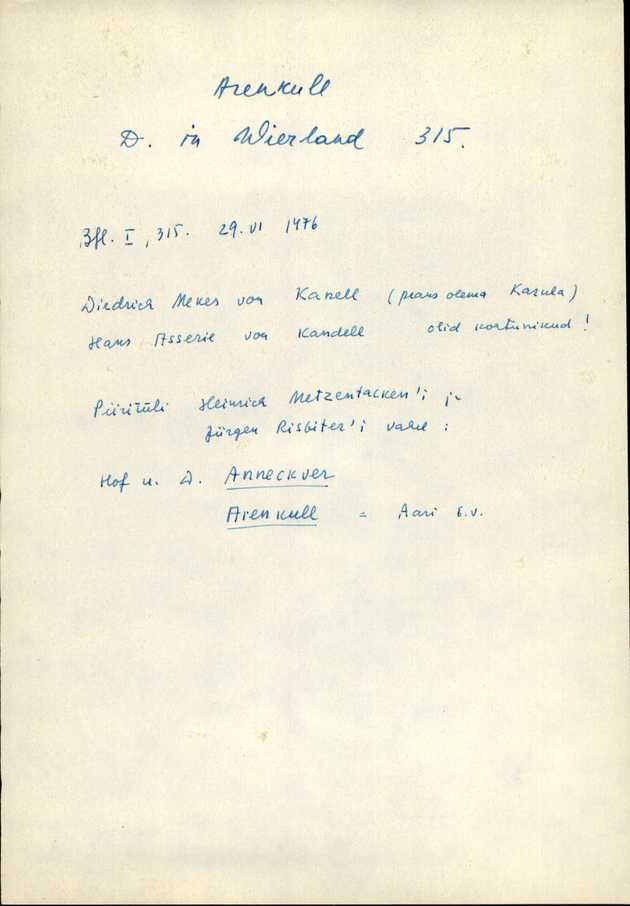 Arenkull
D. in Wierland 315.
Bfl. I, 315. 29.VI 1476
Diedrich Mekes von Kapell (peaks olema Kazula)
Hans Asserie von Kandell olid kohtunikud!
Piiritüli Heinrich Metzentacken'i ja
Jürgen Risbiter'i vahel:
Hof u. D. Anneckver
Arenkull = Aari